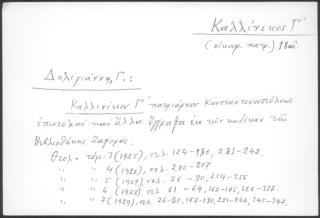 Καλλίνικος Γ΄
(οἰκουμ. πατρ.) 18 αἰ.
Δηλιγιάννη, Γ.:
Καλλινίκου Γ΄ πατριάρχου Κωνσταντινουπόλεως
ἐπιστολαὶ καὶ ἄλλα ἔγγραφα ἐκ τῶν κωδίκων τῆς
Βιβλιοθήκης Ζαγορᾶς.
Θεολ. τόμ. 3 (1925), σελ. 124-136, 231-242.
" " 4 (1926), σελ. 200-207
" " 5 (1927) σελ. 76-80, 214-256
" " 6 (1928) σελ. 61-64, 162-165,
" " 7 (1929), σελ. 76-80, 177-180, 221-226, 345-347.